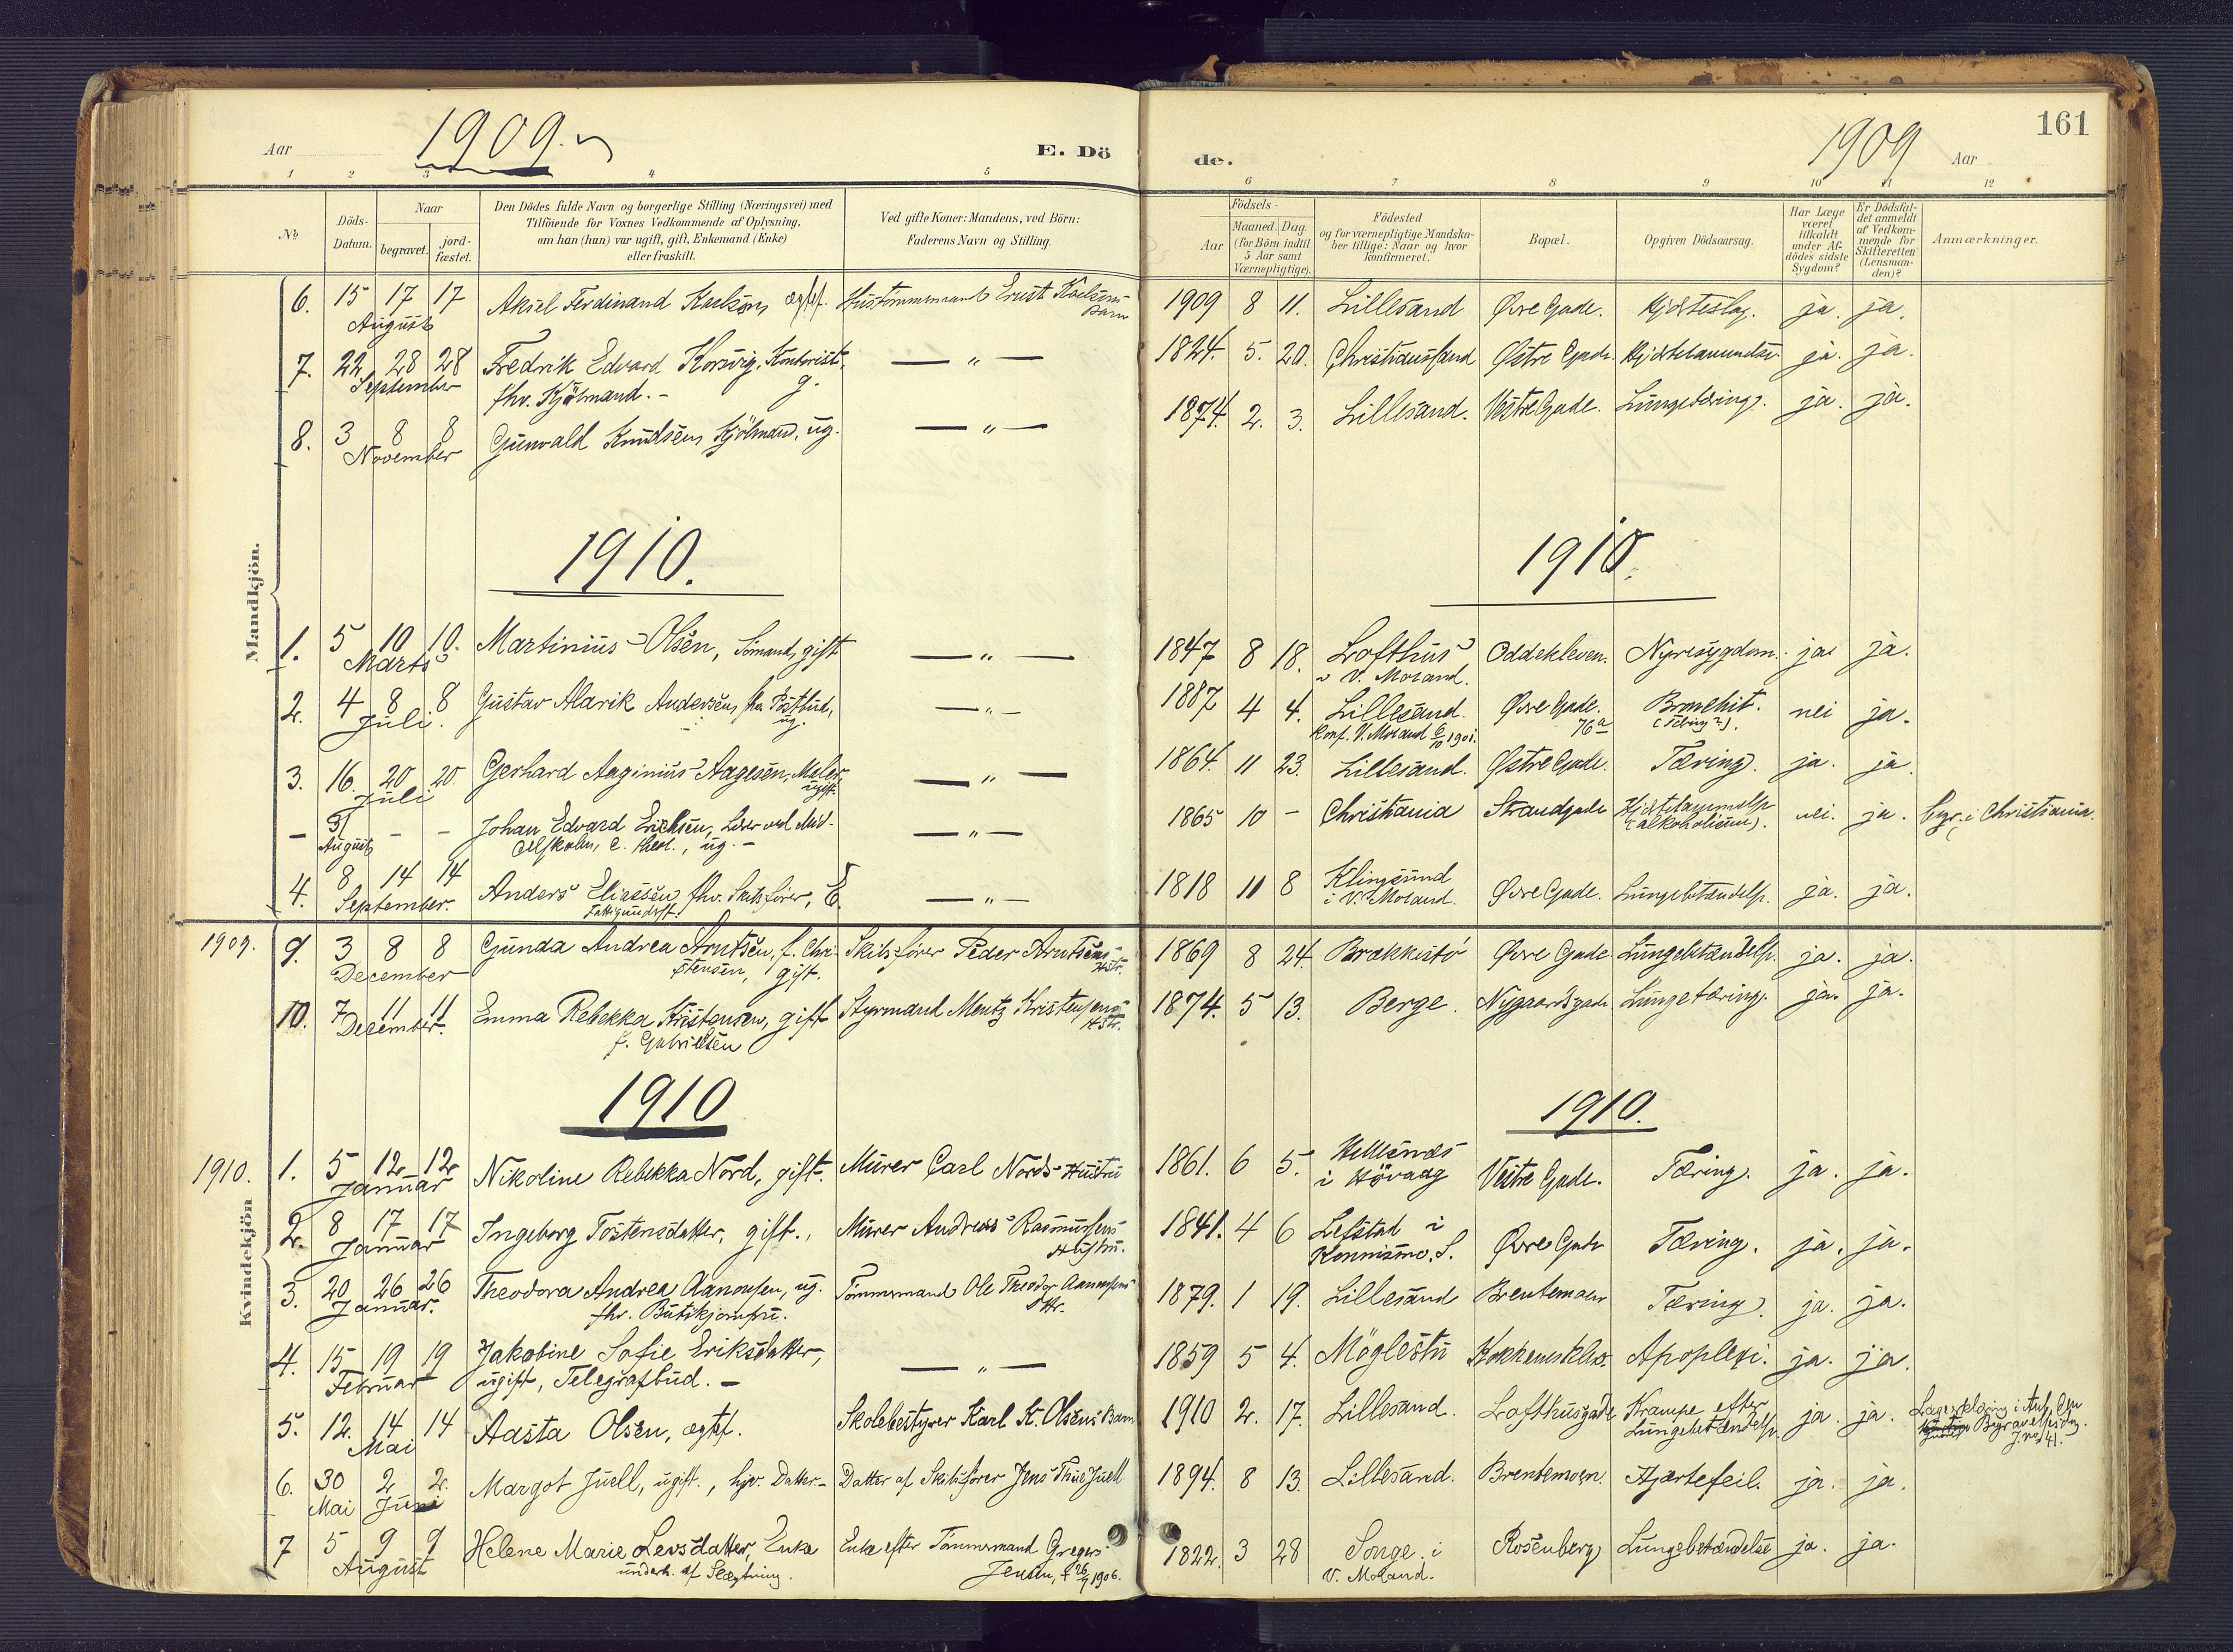 Aar 1909. E. Dö
de. 1909 Aar 161
1 2 3 4 5
6 7 8 9 10 11 12
No Döds-Datum. Naar begravet. jord-fæstet.
Den Dödes fulde Navn og borgerlige Stilling (Næringsvei) med
Tilföiende for Voxnes Vedkommende af Oplysning,
om han (hun) var ugift, gift, Enkemand (Enke)
eller fraskilt.
Ved gifte Koner: Mandens, ved Börn:
Faderens Navn og Stilling.
Födsels-
Aar Maaned. Dag.
(for Börn indtil
5 Aar samt
Værnepligtige).
Födested
og for værnepligtige Mandska-
ber tillige: Naar og hvor
konfirmeret.
Bopæl.
Opgiven Dödsaarsag.
Har Læge
været
tilkaldt
under Af-
dödes sidste
Sygdom?
Er Dödsfal-
det anmeldt
af Vedkom-
mende for
Skifteretten
(Lensman-
den)?
Anmærkninger.
Mandkjön.
6. 15 17 17 Aksel Ferdinand Karlsen, Ernst Karlsens 1909 8 11. Lillesand Øvre Gade. Hjerteslag. ja. ja.
August Barn
7. 22 28 28 Fredrik Edvard Korsvig, Kontorist, — " — 1824. 5. 20. Christianssand Østre Gade. ja. ja.
September fhv. Kjöbmand. - g.
8. 3 8 8 Gunvald Knudsen, Kjöbmand, ug. — " — 1874. 2. 3. Lillesand. Vestre Gade. Lungetæring. ja. ja.
November
1910. 1910.
1. 5 10 10. Martinius Olsen, Sömand, gift — " — 1847 8 18. Lofthus Oddekleven. Nyresygdom. ja. ja.
Marts V. Moland.
2. 4 8 8 Gustav Alarik Andersen, fhv. Postbud, — " — 1887 4 4. Lillesand. Øvre Gade. nei ja.
Juli. ug. Konf. V. Moland 6/10 1901. 76a (Tæring?).
3. 16. 20 20. Gerhard Aaginius Aagesen, Maler, — " — 1864. 11 23. Lillesand. Østre Gade. Tæring. ja. ja.
Juli ugift.
– 31 – – Johan Edvard Erichsen, Lærer ved Mid- — " — 1865 10 – Christiania Strandgade nei. ja. i Christiania.
August delskolen, c. theol., ug. - (alkoholisme).
4. 8 14 14 Anders Eliassen, fhv. Skibsförer, E. — " — 1818 11 8 Klingsund Øvre Gade. Lungebetændelse. ja. ja.
September. Fattigunderst. i V. Moland.
1909. 9. 3 8 8 Gunda Andrea Arntsen, f. Chri- Skibsförer Peder Arntsens 1869 8 24. Brækkestö Øvre Gade Lungebetændelse. ja. ja.
December stensen, gift. Hstr.
10. 7 11 11 Emma Rebekka Kristensen, gift Styrmand Mentz Kristensens 1874. 5 13. Berge. Nygaardsgade Lungetæring. ja. ja.
December. f. Gabrielsen Hstr.
1910 1910.
Kvindekjön
1910. 1. 5 12 12 Nikoline Rebekka Nord, gift. Murer Carl Nords Hustru 1861. 6 5. Hellesnes Vestre Gade. Tæring. ja. ja.
Januar i Hövaag
2. 8 17 17 Ingeborg Tostensdatter, gift., Murer Andreas Rasmussens 1841. 4 6 Lefstad i Øvre Gade Tæring. ja. ja.
Januar Hustru. Konnismo, S.
3. 20 26 26 Theodora Andrea Aanonsen, ug. Tömmermand Ole Theodor Aanonsens 1879. 1 19. Lillesand Brentemoen Tæring. ja. ja.
Januar. fhv. Butikjomfru. Dttr.
4. 15 19 19 Jakobine Sofie Eriksdatter, — " — 1859 5 4. Möglestu Kokkenesklev. Apoplexi. ja. ja.
Februar ugift, Telegrafbud. -
5. 12. 14 14 Aasta Olsen, ægtef. Skolebestyrer Karl K. Olsens Barn 1910 2. 17. Lillesand. Lofthusgade Krampe efter ja. ja. Lægeerklæring i Anl.
Mai Lungebetændelse Begravelsesdag. J. no 41.
6. 30 2 2. Margot Juell, ugift., hjv. Datter. - Datter af Skibsförer Jens Thue Juell 1894. 8 13. Lillesand. Brentemoen. Hjertefeil. ja. ja.
Mai Juni
7 5 9 9 Helene Marie Levsdatter, Enke Enke efter Tömmermand Gregers 1822. 3 28 Songe i Rosenberg Lungebetændelse ja. ja.
August underh. af Slægtning. Jensen, † 1906. V. Moland.